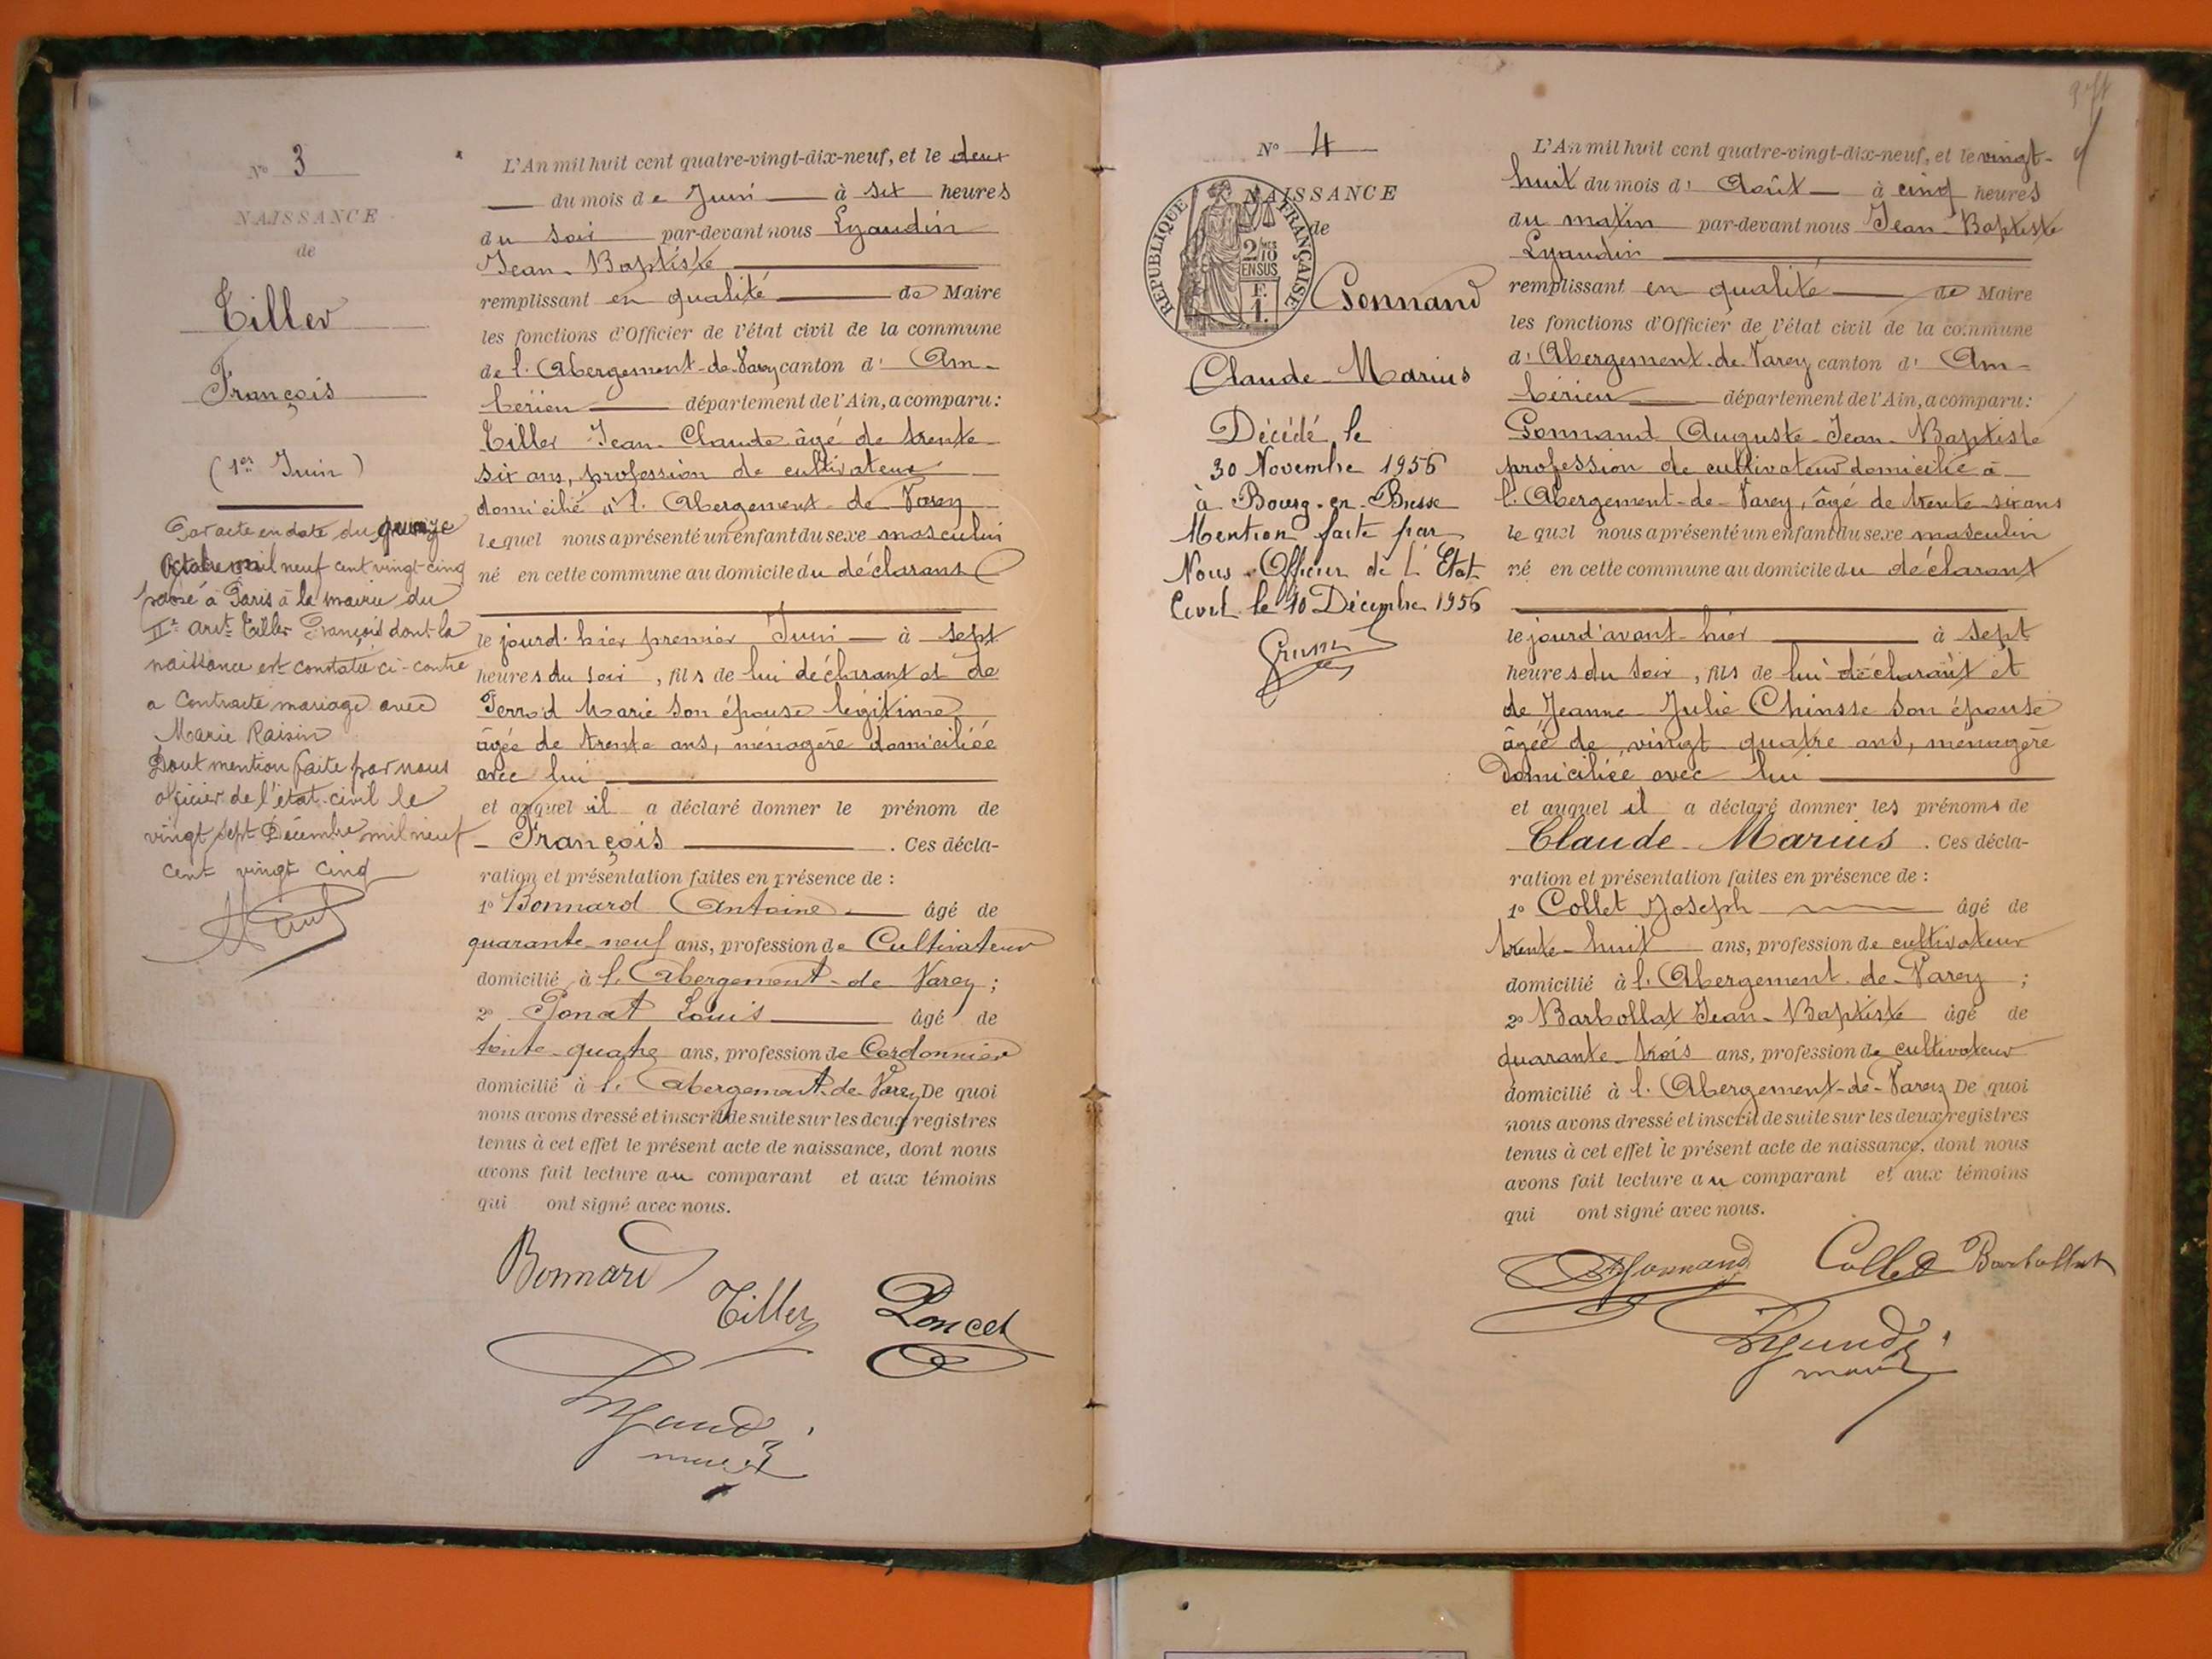 N° 3
NAISSANCE
de
Tiller
François
(1er Juin)
Par acte en date du quinze
Octobre mil neuf cent vingt-cinq
passé à Paris à la mairie du
IIe arrt Tiller François dont la
naissance est constatée ci-contre
a contracté mariage avec
Marie Raisin
Dont mention faite par nous
officier de l'état-civil le
vingt sept Décembre mil neuf
cent vingt cinq
L'An mil huit cent quatre-vingt-dix-neuf, et le deux
du mois de Juin à six heures
du soir par-devant nous Lyaudin
Jean-Baptiste
remplissant en qualité de Maire
les fonctions d'Officier de l'état civil de la commune
de l'Abergement-de-Varey canton d'Am-
bérieu département de l'Ain, a comparu:
Tiller Jean-Claude âgé de trente-
six ans, profession de cultivateur
domicilié à l'Abergement-de Varey
lequel nous a présenté un enfant du sexe masculin
né en cette commune au domicile du déclarant
le jourd'hier premier Juin à sept
heures du soir, fils de lui déclarant et de
Perrod Marie son épouse légitime
âgée de trente ans, ménagère domiciliée
avec lui
et auquel il a déclaré donner le prénom de
François. Ces décla-
ration et présentation faites en présence de:
1° Bonnard Antoine âgé de
quarante-neuf ans, profession de Cultivateur
domicilié à l'Abergement-de Varey;
2° Ponat Louis âgé de
trente-quatre ans, profession de Cordonnier
domicilié à l'Abergement-de-Varey De quoi
nous avons dressé et inscrit de suite sur les deux registres
tenus à cet effet le présent acte de naissance, dont nous
avons fait lecture au comparant et aux témoins
qui ont signé avec nous.
Bonnard
Tiller
Poncet
N° 4
NAISSANCE
de
REPUBLIQUE FRANÇAISE
2/10
EN SUS
F.
1.
Gonnand
Claude-Marius
Décédé le
30 Novembre 1956
à Bourg-en-Bresse
Mention faite par
Nous Officier de L'Etat
Civil le 10 Décembre 1956
L'An mil huit cent quatre-vingt-dix-neuf, et le vingt-
huit du mois d'Août à cinq heures
du matin par-devant nous Jean-Baptiste
Lyaudin
remplissant en qualité de Maire
les fonctions d'Officier de l'état civil de la commune
d'Abergement-de-Varey canton d'Am-
bérieu département de l'Ain, a comparu:
Gonnand Auguste-Jean-Baptiste
profession de cultivateur domicilié à
l'Abergement-de-Varey, âgé de trente-six ans
lequel nous a présenté un enfant du sexe masculin
né en cette commune au domicile du déclarant
le jourd'avant-hier à sept
heures du soir, fils de lui déclarant et
de Jeanne-Julie Chinsse son épouse
âgée de vingt quatre ans, ménagère
domiciliée avec lui
et auquel il a déclaré donner les prénoms de
Claude-Marius. Ces décla-
ration et présentation faites en présence de:
1° Collet Joseph âgé de
trente-huit ans, profession de cultivateur
domicilié à l'Abergement-de-Varey;
2° Barbollat Jean-Baptiste âgé de
quarante-trois ans, profession de cultivateur
domicilié à l'Abergement-de-Varey De quoi
nous avons dressé et inscrit de suite sur les deux registres
tenus à cet effet le présent acte de naissance, dont nous
avons fait lecture au comparant et aux témoins
qui ont signé avec nous.
Gonnand Collet Barbollat